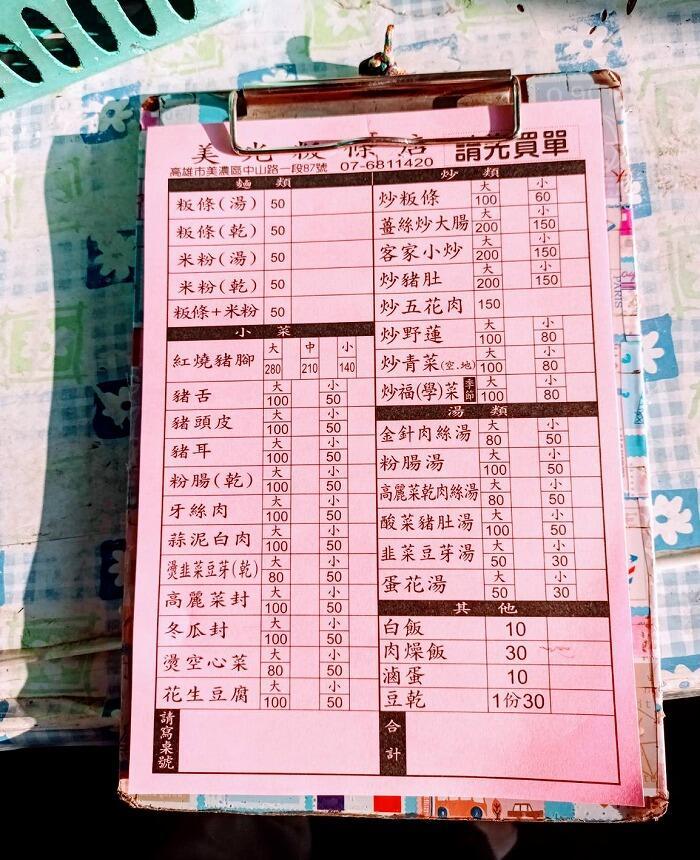 美光粄條店 請先買單
高雄市美濃區中山路一段87號 07-6811420
麵類
粄條(湯) 50
粄條(乾) 50
米粉(湯) 50
米粉(乾) 50
粄條+米粉 50
小菜
紅燒豬腳 大 280 中 210 小 140
豬舌 大 100 小 50
豬頭皮 大 100 小 50
豬耳 大 100 小 50
粉腸(乾) 大 100 小 50
牙絲肉 大 100 小 50
蒜泥白肉 大 100 小 50
燙韭菜豆芽(乾) 大 80 小 50
高麗菜封 大 100 小 50
冬瓜封 大 100 小 50
燙空心菜 大 80 小 50
花生豆腐 大 100 小 50
請寫桌號
炒類
炒粄條 大 100 小 60
薑絲炒大腸 大 200 小 150
客家小炒 大 200 小 150
炒豬肚 大 200 小 150
炒五花肉 150
炒野蓮 大 100 小 80
炒青菜(空.地) 大 100 小 80
炒福(學)菜 季節 大 100 小 80
湯類
金針肉絲湯 大 80 小 50
粉腸湯 大 100 小 50
高麗菜乾肉絲湯 大 80 小 50
酸菜豬肚湯 大 100 小 50
韭菜豆芽湯 大 50 小 30
蛋花湯 大 50 小 30
其他
白飯 10
肉燥飯 30
滷蛋 10
豆乾 1份30
合計
PARIS